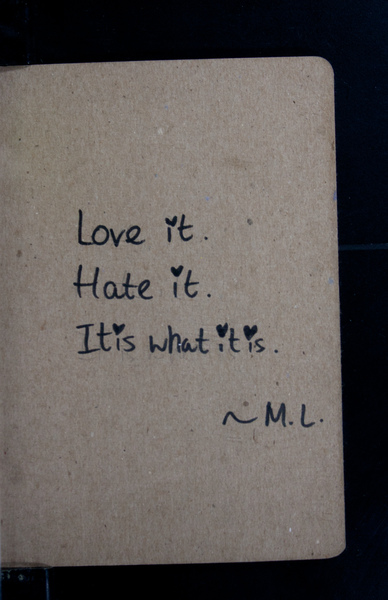 Love it.
Hate it.
It is what it is.
~ M.L.